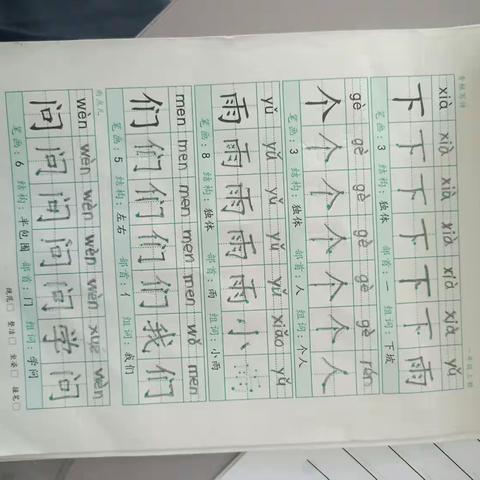 一年级上册
xià xià xià xià xià xià yǔ
下 下 下 下 下 下 雨
笔画：3 结构：独体 部首：一 组词：下坡
gè gè gè gè gè gè rén
个 个 个 个 个 个 人
笔画：3 结构：独体 部首：人 组词：个人
yǔ yǔ yǔ yǔ yǔ xiǎo yǔ
雨 雨 雨 雨 雨 小
笔画：8 结构：独体 部首：雨 组词：小雨
men men men men men wǒ men
们 们 们 们 们 我 们
笔画：5 结构：左右 部首：亻 组词：我们
wèn wèn wèn wèn wèn xué wèn
问 问 问 问 问 学 问
笔画：6 结构：半包围 部首：门 组词：学问
规范□ 整洁□ 坐姿□ 握笔□